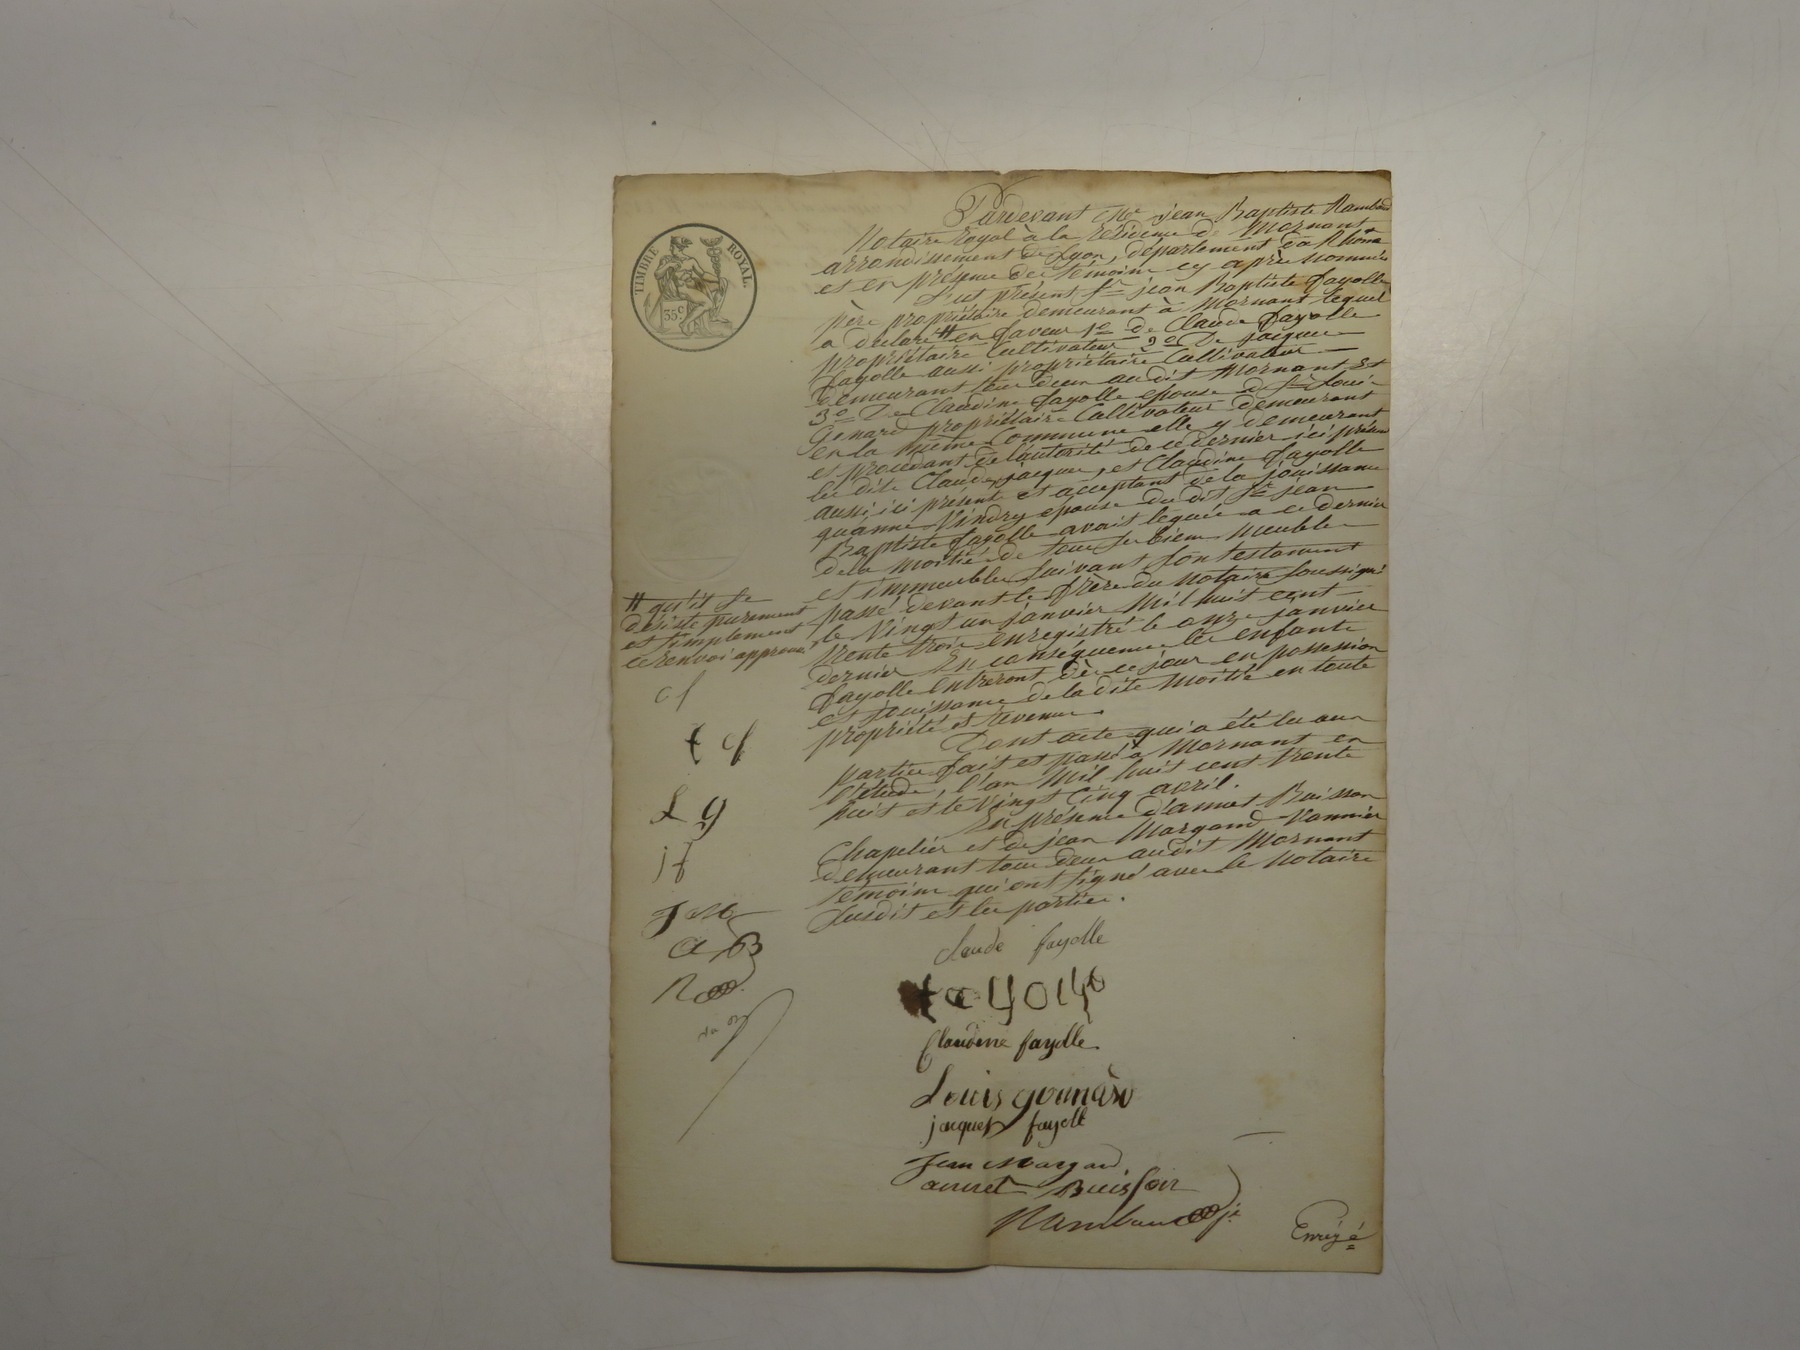 TIMBRE ROYAL.
35c
Pardevant Me jean Baptiste Rambaud
Notaire royal à la résidence de Mornant
arrondissement de Lyon, département du Rhône
et en présence des témoins cy après nommés
fut présent Sr jean Baptiste fayolle
père propriétaire demeurant à Mornant lequel
a déclaré # en faveur 1o de Claude fayolle
propriétaire Cultivateur 2o De jacques
fayolle aussi propriétaire Cultivateur
demeurant tous deux audit Mornant Et
3o De Claudine fayolle épouse de Sr Louis
Gonard propriétaire Cultivateur demeurant
en la même Commune elle y demeurant
et procédant de l'autorité de ce dernier ici présent
les dits Claude, jacques, et Claudine fayolle
aussi ici présents et acceptant de la jouissance
qu'anne Vindry épouse du dit Sr jean
Baptiste fayolle avait léguée a ce dernier
de la moitié de tous ses biens meubles
et immeubles suivant son testament
passé devant le frère du notaire soussigné
le Vingt un janvier Mil huit cent
trente trois enregistré le onze janvier
dernier En conséquence les enfants
fayolle entreront dès ce jour en possession
et jouissance de la dite moitié en toute
propriété et revenus.
Dont acte qui a été lu aux
parties fait et passé à Mornant en
l'étude, l'an Mil huit cent trente
huit et le Vingt Cinq avril.
En présence d'annet Buisson
Chapelier et de jean Margand Vannier
demeurant tous deux audit Mornant
témoins qui ont signé avec le Notaire
susdit et les parties.
# qu'il se
désiste purement
et simplement
ce renvoi approuvé
cf
f cf
L g
jf
J M
a B
R
claude fayolle
fayolle
Claudine fayolle
Louis gounard
jacques fayolle
Jean Margand
annet Buisson
Rambaud je
Enrégé